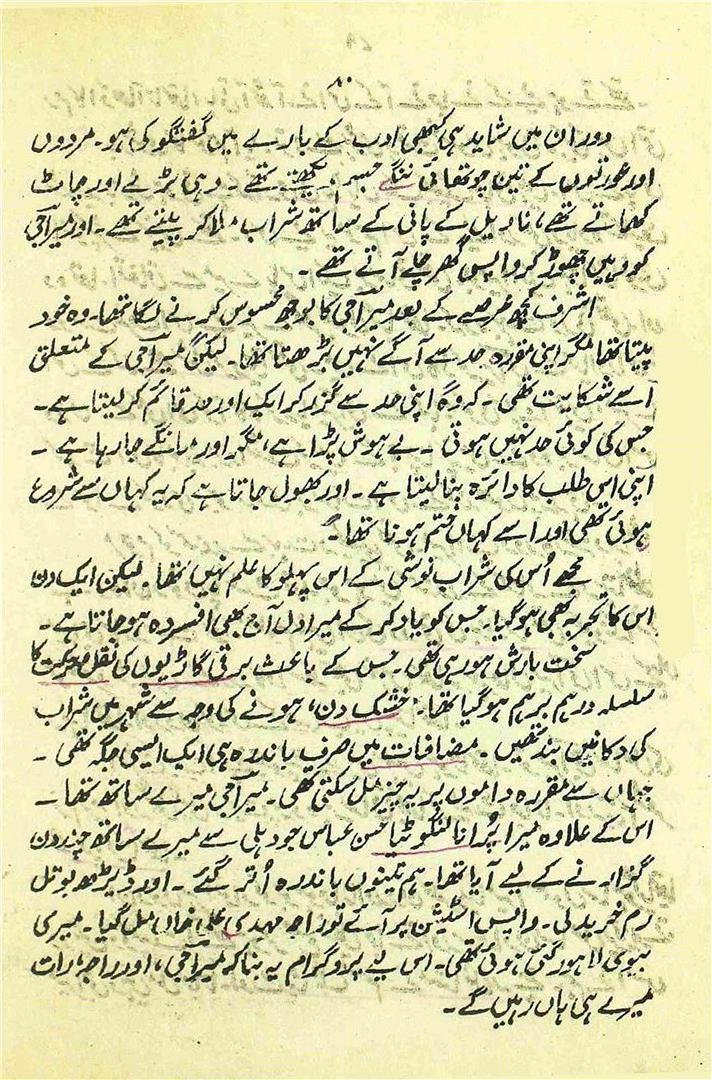 ۸۰
دوران میں شاید ہی کبھی ادب کے بارے میں گفتگو کی ہو۔ مردوں
اور عورتوں کے تین چوتھائی ننگے جسم دیکھتے تھے۔ دہی بڑے اور چاٹ
کھاتے تھے، ناریل کے پانی کے ساتھ شراب ملا کر پیتے تھے۔ اور میراجی
کو وہیں چھوڑ کر واپس گھر چلے آتے تھے۔
اشرف کچھ عرصے کے بعد میراجی کا بوجھ محسوس کرنے لگا تھا۔ وہ خود
پیتا تھا مگر اپنی مقررہ حد سے آگے نہیں بڑھتا تھا۔ لیکن میراجی کے متعلق
اسے شکایت تھی۔ کہ وہ اپنی حد سے گزر کر ایک اور حد قائم کر لیتا ہے۔
جس کی کوئی حد نہیں ہوتی۔ بے ہوش پڑا ہے، مگر اور مانگے جا رہا ہے۔
اپنی اس طلب کا دائرہ بنا لیتا ہے۔ اور بھول جاتا ہے کہ یہ کہاں سے شروع
ہوئی تھی اور اسے کہاں ختم ہونا تھا۔
مجھے اُس کی شراب نوشی کے اس پہلو کا علم نہیں تھا۔ لیکن ایک دن
اس کا تجربہ بھی ہو گیا۔ جس کو یاد کر کے میرا دل آج بھی افسردہ ہو جاتا ہے۔
سخت بارش ہو رہی تھی۔ جس کے باعث برقی گاڑیوں کی نقل و حرکت کا
سلسلہ درہم برہم ہو گیا تھا۔ ’خشک دن‘ ہونے کی وجہ سے شہر میں شراب
کی دکانیں بند تھیں۔ مضافات میں صرف باندرہ ہی ایک ایسی جگہ تھی۔
جہاں سے مقررہ داموں پر یہ چیز مل سکتی تھی۔ میراجی میرے ساتھ تھا۔
اس کے علاوہ میرا پُرانا لنگوٹیا حسن عباس جو دہلی سے میرے ساتھ چند دن
گزارنے کے لیے آیا تھا۔ ہم تینوں باندرہ اُتر گئے۔ اور ڈیڑھ بوتل
رم خرید لی۔ واپس اسٹیشن پر آئے تو راجہ مہدی علی خاں مل گیا۔ میری
بیوی لاہور گئی ہوئی تھی۔ اس لیے پروگرام یہ بنا کہ میراجی، اور راجہ رات
میرے ہی ہاں رہیں گے۔